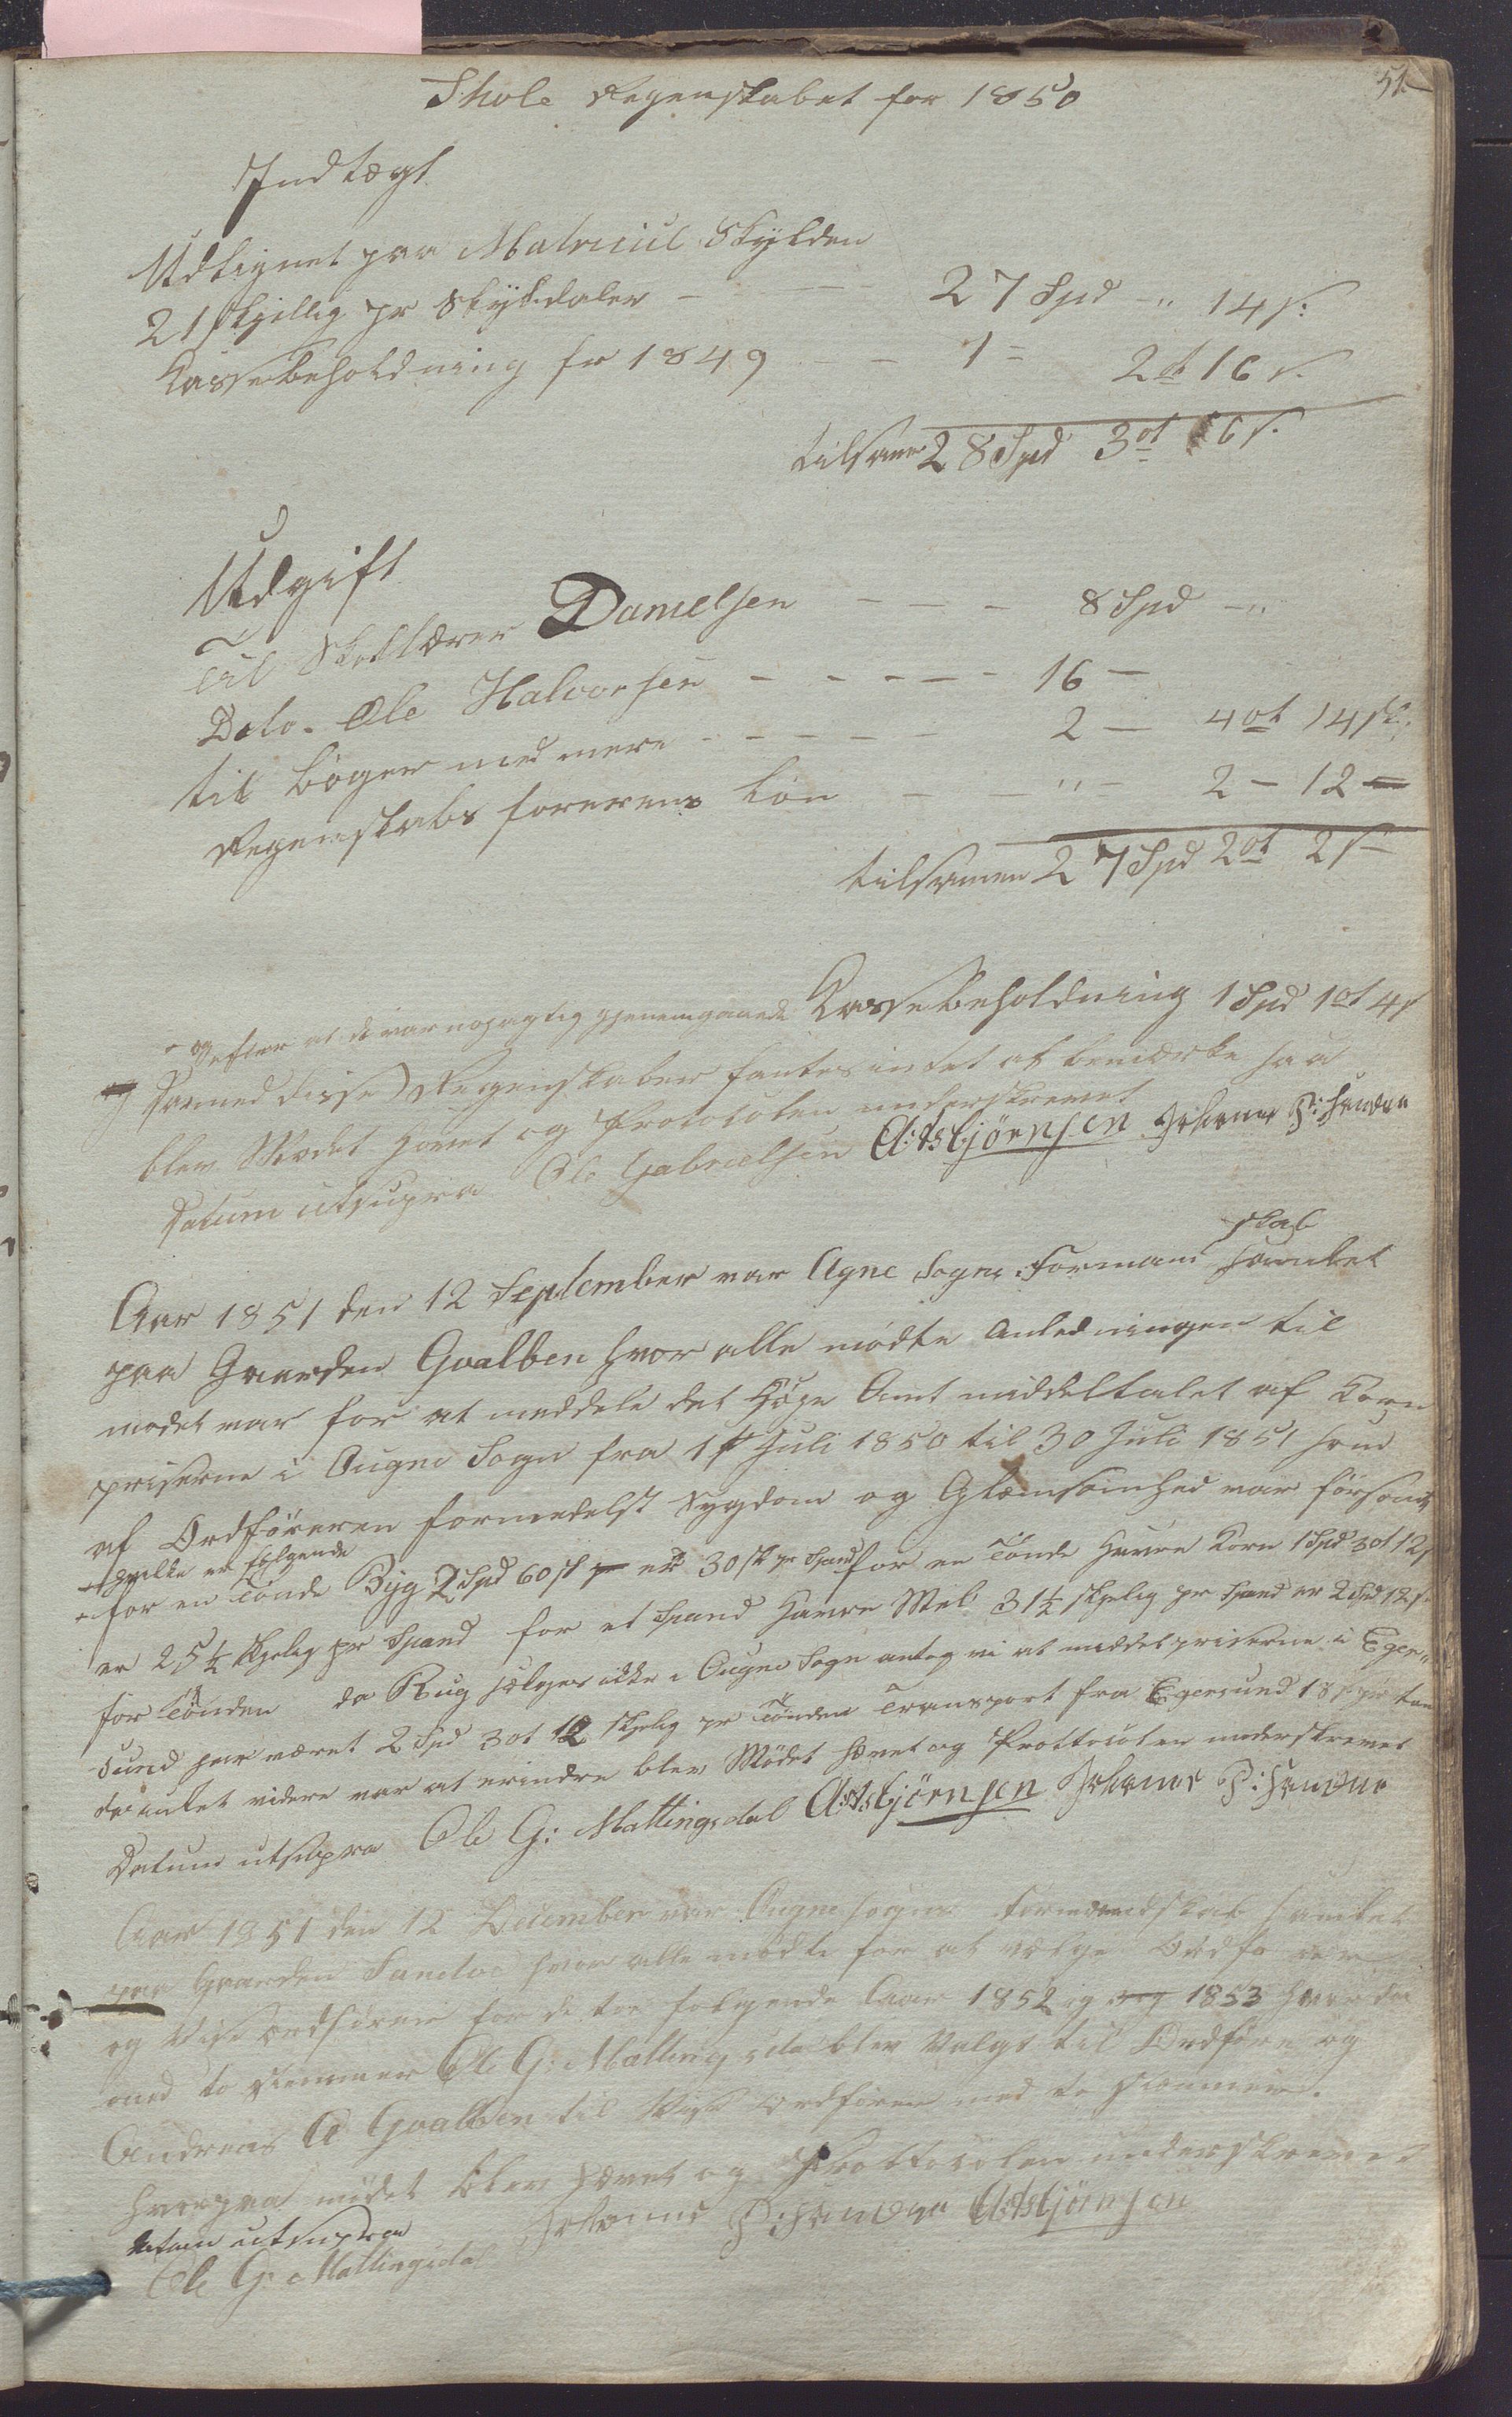 51
Skole Regenskabet for 1850
Indtægt
Udlignet paa Matricul Skylden
21 skjillig pr Skyldaler - - - 27 Spd - " 14 s:
Kassebeholdning fr 1849 - - 1 = 2 ot 16 s.
tilsamen 28 Spd 3 ot 6 s.
Udgift
Til Skollærer Danielsen - - - 8 Spd - "
Dito. Ole Halvorsen - - - - - 16 -
til Bøger med mere - - - - - 2 - 4 ot 14 sk:
Regenskabs førerens Løn - - " - 2 - 12 =
tilsamen 27 Spd 2 ot 2 s
Kassebeholdning 1 Spd 1 ot 4 s
og efter at de var nøyagtig gjenemgaaede
Dermed disse) Regenskaber fantes intet at bemærke saa
blev Mødet hævet og Protocolen underskrevet
Datum utsupra Ole Gabrielsen A: Asbjørnsen Johanes P: Sandve
skab
Aar 1851 den 12 September var Ogne Sogns Formand samlet
paa Gaarden Gvalben hvor alle mødte Anledningen til
mødet var for at meddele det Høye Amt middeltalet af Korn
priserne i Ougne Sogn fra 1st Juli 1850 til 30 Juli 1851 som
af Ordføreren formedelst Sygdom og Glæmsomhed var försømt
hvilke er følgende
for en Tønde Byg 2 Spd 60 sk er 30 sk pr Spand for en Tønde Havre Korn 1 Spd 3 ot 12 s
er 25 1/2 skjelig pr Spand for et Spand Havre Mel 31 1/2 skjelig pr Spand er 2 Spd 12 s
for Tønden da Rug sælges ikke i Ougne Sogn antog vi at middelpriserne i Eger„
sund har været 2 Spd 3 ot 12 skjelig pr Tønden Transport fra Egersund 18 s pr tøn
da intet videre var at erindre blev Mødet hævet og Prottocolen underskrevet
Datum utsupra Ole G: Mattingsdal A: Asbjørnsen Johanes P: Sandve
Aar 1851 den 12 December var Ougne sogns Formandskab samlet
paa Gaarden Sandve hvor alle mødte for at vælge Ordfører
og Vise ordfører for de toe følgende Aar 1852 og 1853 hvor da
med to stemmer Ole G: Mattingsda blev Valgt til Ordføre og
Andreas A Gvalben til Vise Ordfører med to stemmer.
hvorpaa mødet blev hævet og Prottocolen underskrevet
datum utsupra Johanes P: Sandve A: Asbjørnsen
Ole G: Mattingsdal